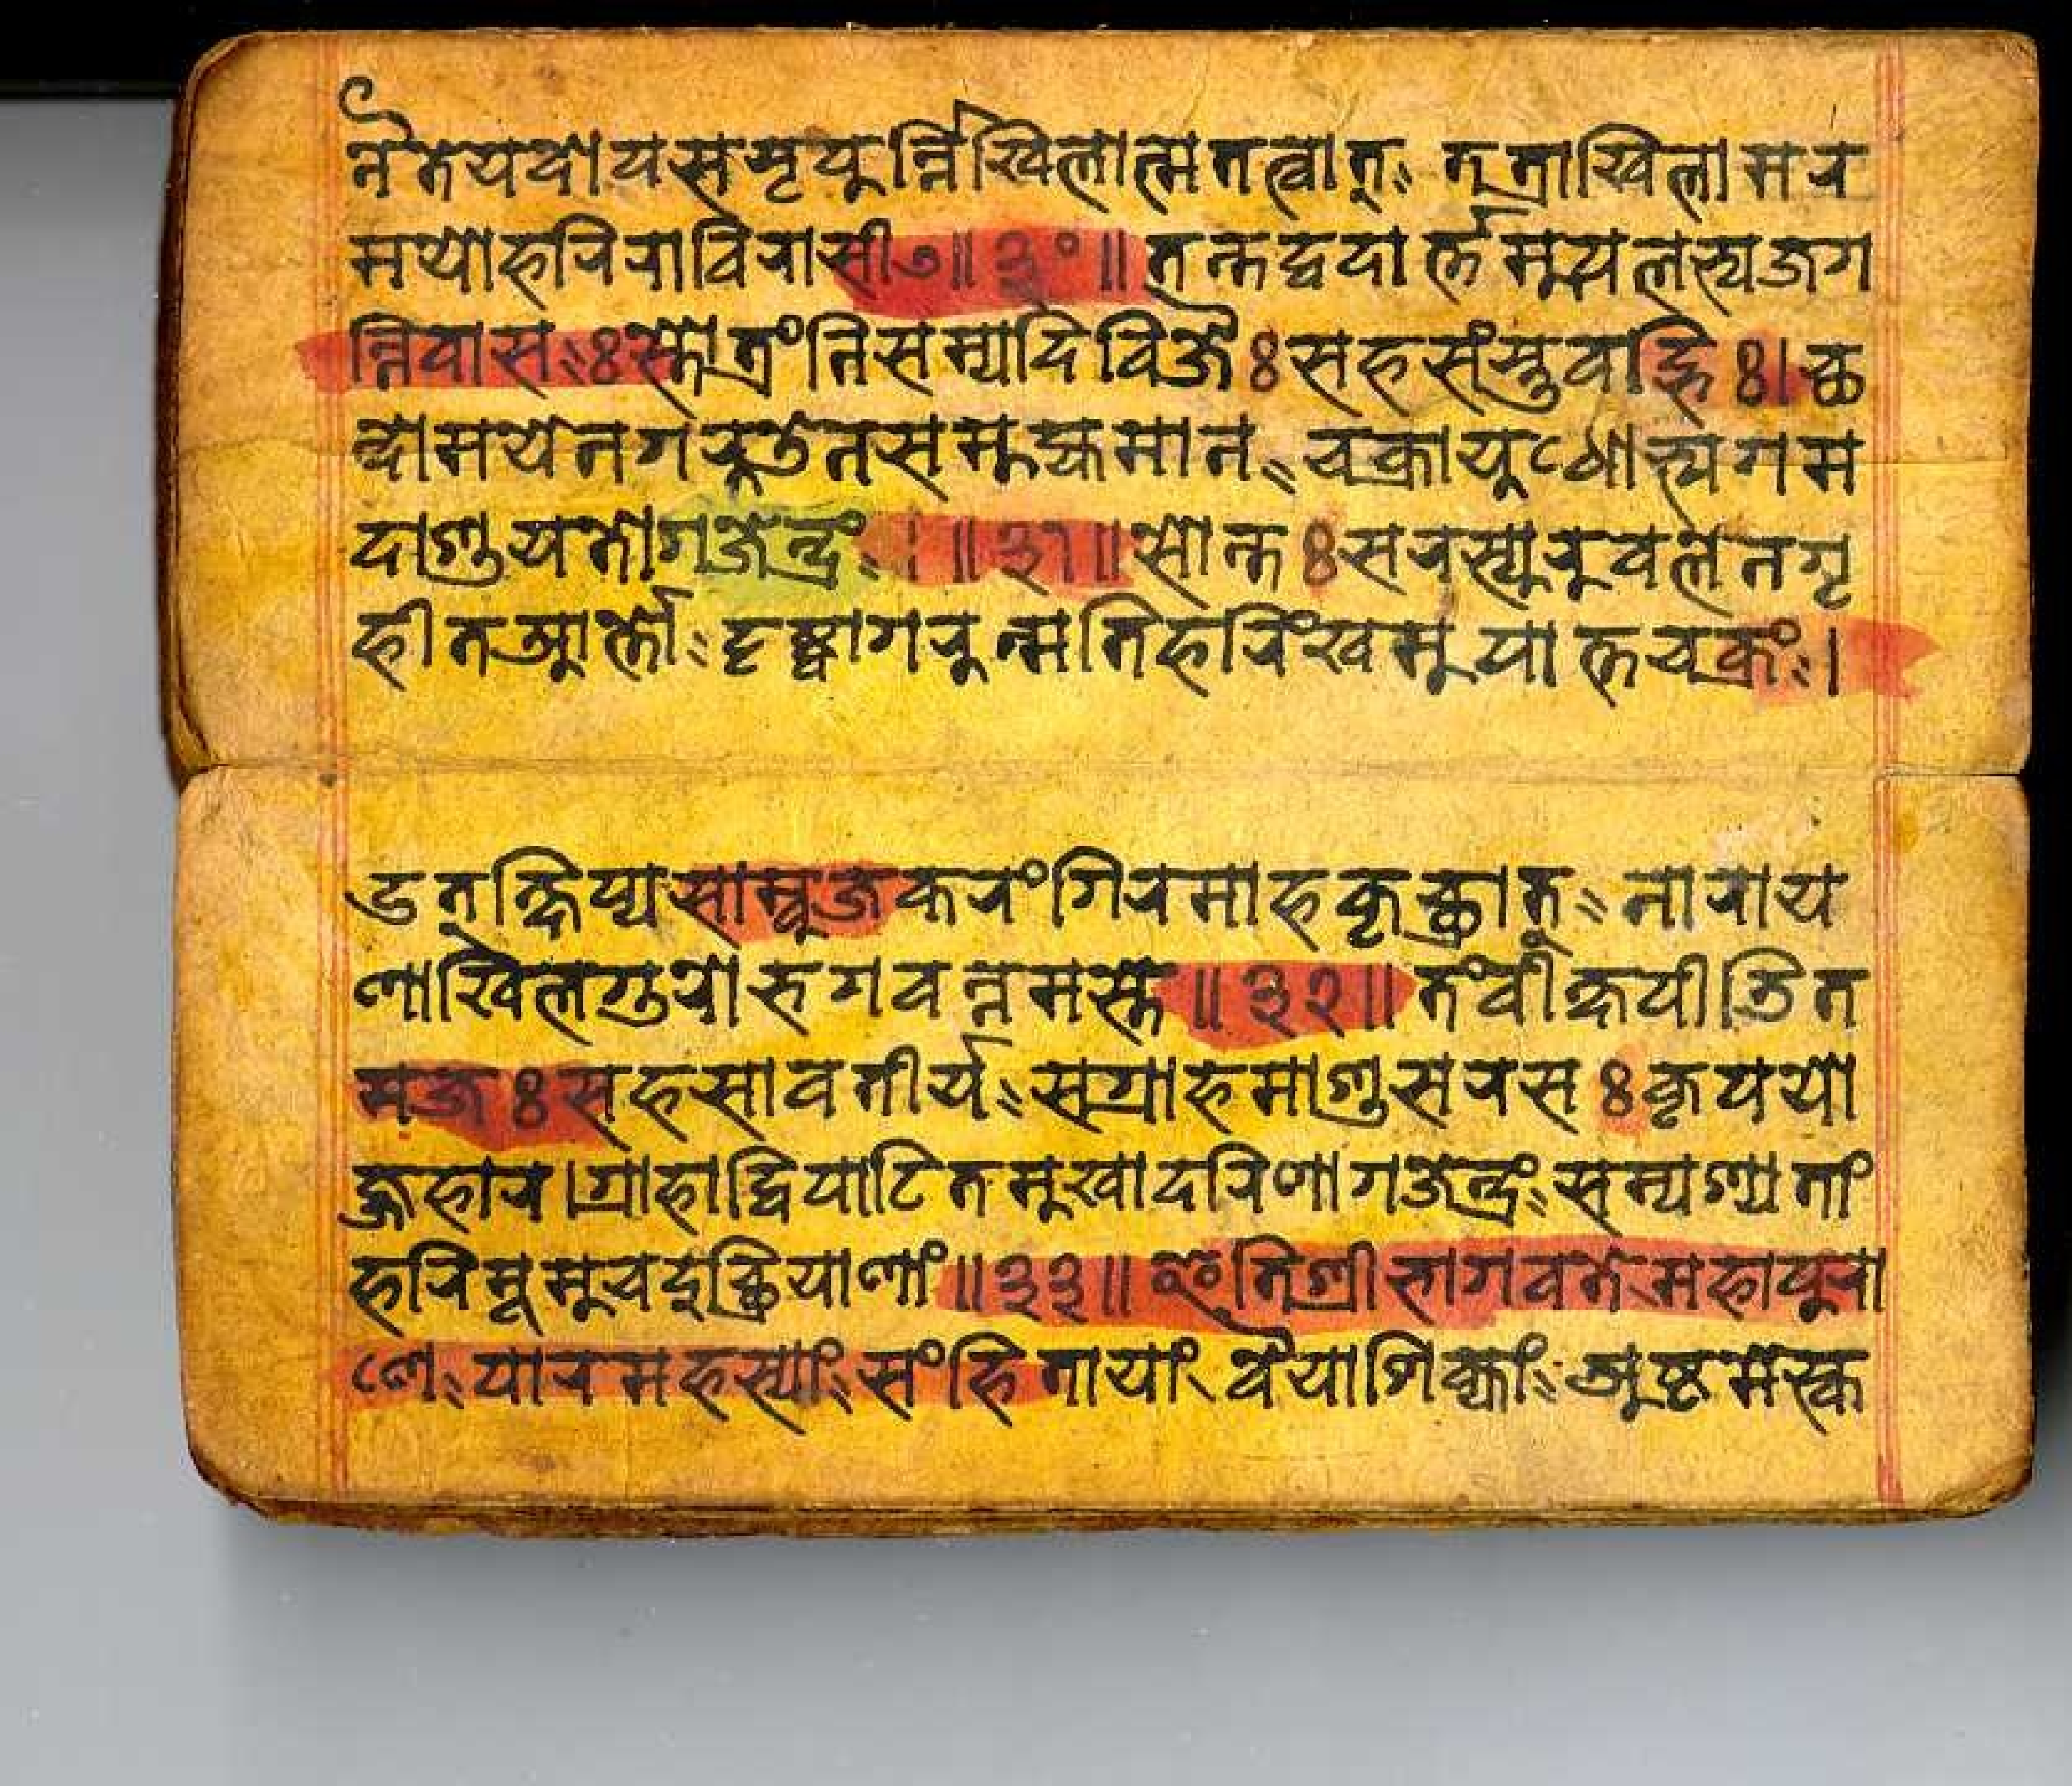 नैतयदायससृयुन्निखिलात्मतत्वात् तत्राखिलामर
मयोहरिराविरासीत्॥३०॥तन्तद्वदार्त्तमुपलस्यजग
न्निवासःस्तोत्रंनिसम्यदिविजैःसहसंस्तुवद्भिः।छ
न्दोमयेनगरुडेनसमुह्यमानश्चक्रायुधोस्यगम
दाशुयतोगजेन्द्रं।॥३१॥सोन्तःसरस्युरुवलेनगृ
हीतआर्त्तोदृष्ट्वागरुत्मतिहरिंखमुपात्तचक्रं।
उतक्षिप्यसाम्बुजकरंगिरमाहकृच्छ्रात् नाराय
णाखिलगुरोभगवन्नमस्ते॥३२॥तंवीक्षपीडित
मजःसहसावतीर्य सग्राहमाशुसरसःकृपयो
ज्जहार।ग्राहाद्विपाटितमुखादरिणागजेन्द्रंसम्पश्यतां
हरिमूमुचदुच्छ्रियाणां॥३३॥इतिश्रीभागवतेमहापुरा
णेपारमहस्यांसंहितायांवैयाशिक्यांअष्टमेस्क